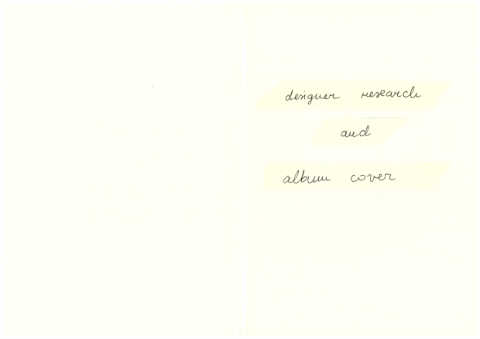 designer research
and
album cover